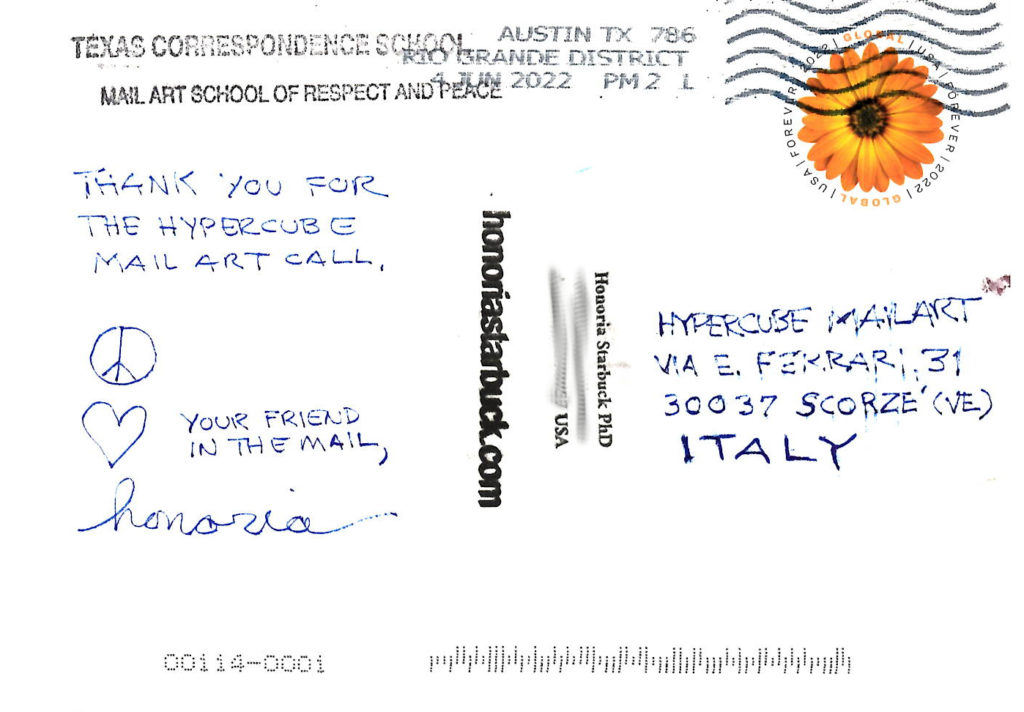 TEXAS CORRESPONDENCE SCHOOL
MAIL ART SCHOOL OF RESPECT AND PEACE
AUSTIN TX 786
RIO GRANDE DISTRICT
4 JUN 2022 PM 2 L
GLOBAL | USA | FOREVER | 2022 | GLOBAL | USA | FOREVER | 2022 |
THANK YOU FOR
THE HYPERCUBE
MAIL ART CALL.
YOUR FRIEND
IN THE MAIL,
honoria
honoriastarbuck.com
Honoria Starbuck PhD
USA
HYPERCUBE MAILART
VIA E. FERRARI, 31
30037 SCORZE' (VE)
ITALY
00114-0001